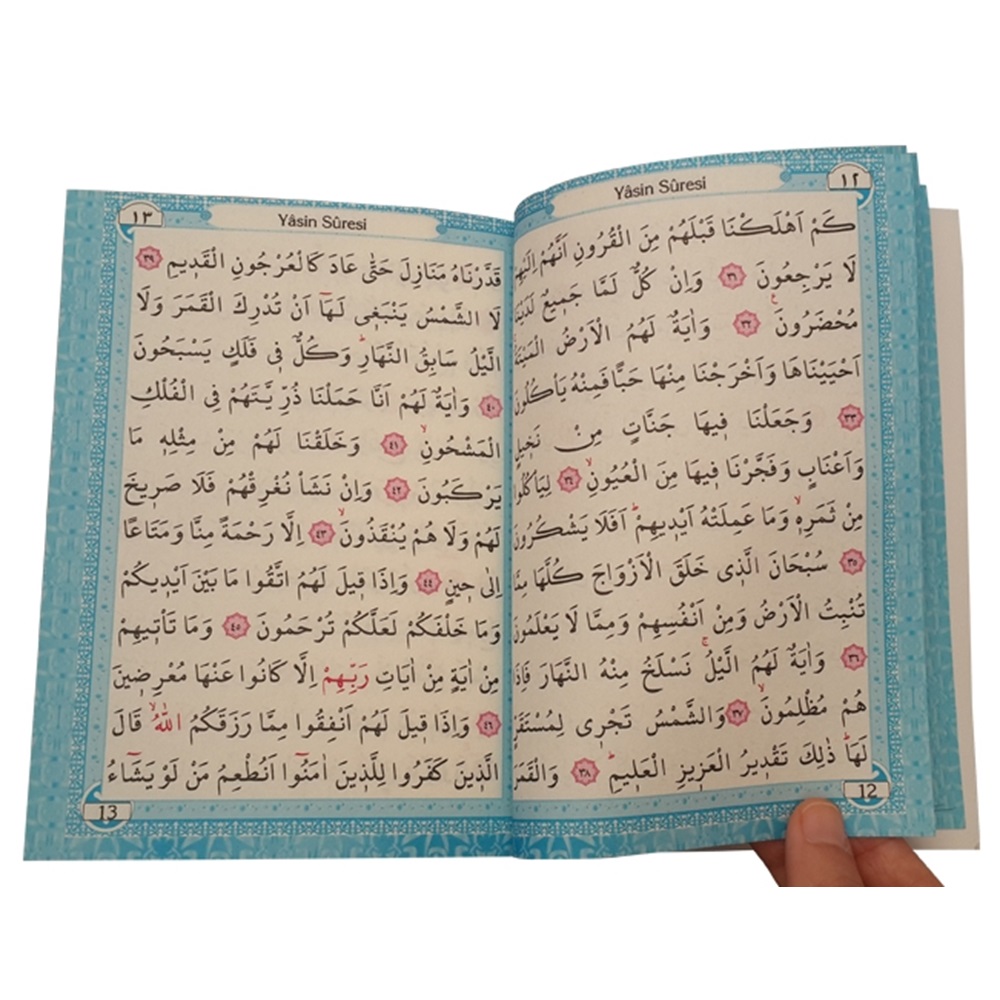 Yâsin Sûresi
١٢
كَمْ اَهْلَكْنَا قَبْلَهُمْ مِنَ الْقُرُونِ اَنَّهُمْ اِلَيْهِمْ
لَا يَرْجِعُونَ ﴿٣١﴾ وَاِنْ كُلٌّ لَمَّا جَمٖيعٌ لَدَيْنَا
مُحْضَرُونَ ﴿٣٢﴾ وَاٰيَةٌ لَهُمُ الْاَرْضُ الْمَيْتَةُ
اَحْيَيْنَاهَا وَاَخْرَجْنَا مِنْهَا حَبًّا فَمِنْهُ يَاْكُلُونَ
﴿٣٣﴾ وَجَعَلْنَا فٖيهَا جَنَّاتٍ مِنْ نَخٖيلٍ
وَاَعْنَابٍ وَفَجَّرْنَا فٖيهَا مِنَ الْعُيُونِۙ ﴿٣٤﴾ لِيَاْكُلُوا
مِنْ ثَمَرِهٖۙ وَمَا عَمِلَتْهُ اَيْدٖيهِمْۜ اَفَلَا يَشْكُرُونَ
﴿٣٥﴾ سُبْحَانَ الَّذٖى خَلَقَ الْاَزْوَاجَ كُلَّهَا مِمَّا
تُنْبِتُ الْاَرْضُ وَمِنْ اَنْفُسِهِمْ وَمِمَّا لَا يَعْلَمُونَ
﴿٣٦﴾ وَاٰيَةٌ لَهُمُ الَّيْلُۚ نَسْلَخُ مِنْهُ النَّهَارَ فَاِذَا
هُمْ مُظْلِمُونَۙ ﴿٣٧﴾ وَالشَّمْسُ تَجْرٖى لِمُسْتَقَرٍّ
لَهَاۜ ذٰلِكَ تَقْدٖيرُ الْعَزٖيزِ الْعَلٖيمِۜ ﴿٣٨﴾ وَالْقَمَرَ
12
١٣
Yâsin Sûresi
قَدَّرْنَاهُ مَنَازِلَ حَتّٰى عَادَ كَالْعُرْجُونِ الْقَدٖيمِ ﴿٣٩﴾
لَا الشَّمْسُ يَنْبَغٖى لَهَٓا اَنْ تُدْرِكَ الْقَمَرَ وَلَا
الَّيْلُ سَابِقُ النَّهَارِۜ وَكُلٌّ فٖى فَلَكٍ يَسْبَحُونَ
﴿٤٠﴾ وَاٰيَةٌ لَهُمْ اَنَّا حَمَلْنَا ذُرِّيَّتَهُمْ فِى الْفُلْكِ
الْمَشْحُونِۙ ﴿٤١﴾ وَخَلَقْنَا لَهُمْ مِنْ مِثْلِهٖ مَا
يَرْكَبُونَ ﴿٤٢﴾ وَاِنْ نَشَاْ نُغْرِقْهُمْ فَلَا صَرٖيخَ
لَهُمْ وَلَا هُمْ يُنْقَذُونَۙ ﴿٤٣﴾ اِلَّا رَحْمَةً مِنَّا وَمَتَاعًا
اِلٰى حٖينٍ ﴿٤٤﴾ وَاِذَا قٖيلَ لَهُمُ اتَّقُوا مَا بَيْنَ اَيْدٖيكُمْ
وَمَا خَلْفَكُمْ لَعَلَّكُمْ تُرْحَمُونَ ﴿٤٥﴾ وَمَا تَاْتٖيهِمْ
مِنْ اٰيَةٍ مِنْ اٰيَاتِ رَبِّهِمْ اِلَّا كَانُوا عَنْهَا مُعْرِضٖينَ
﴿٤٦﴾ وَاِذَا قٖيلَ لَهُمْ اَنْفِقُوا مِمَّا رَزَقَكُمُ اللّٰهُۙ قَالَ
الَّذٖينَ كَفَرُوا لِلَّذٖينَ اٰمَنُٓوا اَنُطْعِمُ مَنْ لَوْ يَشَٓاءُ
13